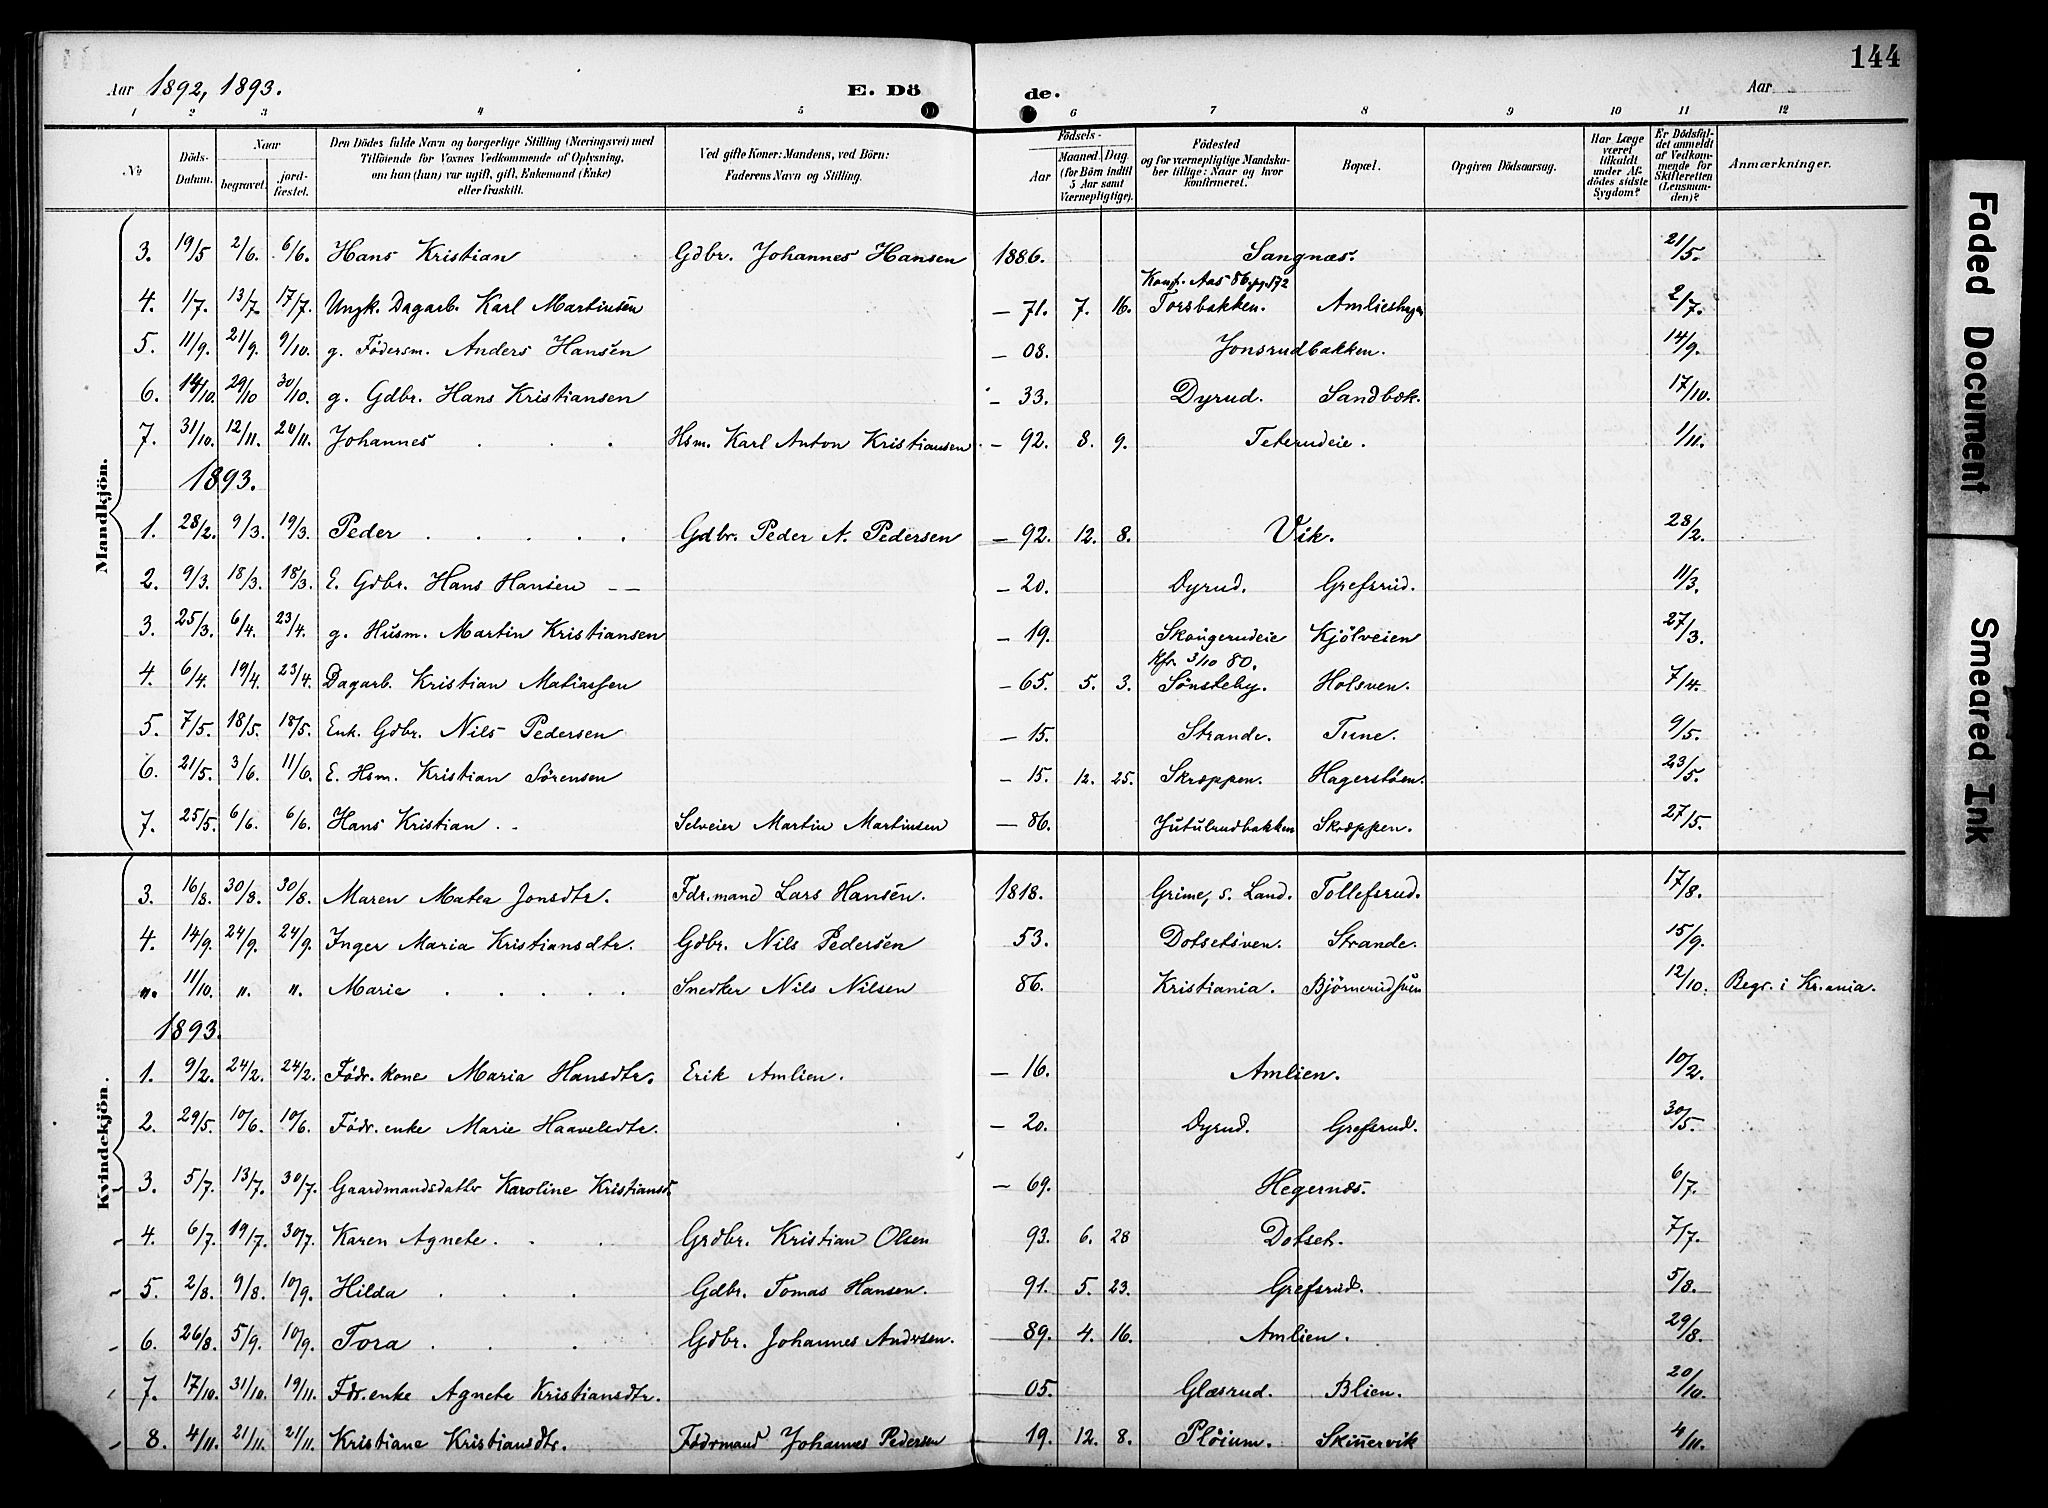 144
Aar 1892, 1893. E. Dö de. Aar
1 2 3 4 5 6 7 8 9 10 11 12
No Döds-Datum. Naar begravet. jordfæstet. Den Dödes fulde Navn og borgerlige Stilling (Næringsvei) med Tilföiende for Voxnes Vedkommende af Oplysning, om han (hun) var ugift, gift, Enkemand (Enke) eller fraskilt. Ved gifte Koner: Mandens, ved Börn: Faderens Navn og Stilling. Födsels- Aar Maaned. Dag. (for Börn indtil 5 Aar samt Værnepligtige). Födested og for værnepligtige Mandskaber tillige: Naar og hvor konfirmeret. Bopæl. Opgiven Dödsaarsag. Har Læge været tilkaldt under Afdödes sidste Sygdom? Er Dödsfaldet anmeldt af Vedkommende for Skifteretten (Lensmanden)? Anmærkninger.
Mandkjön.
3. 19/5 2/6. 6/6. Hans Kristian Gdbr. Johannes Hansen 1886. Sangnæs. 21/5.
Konf. Aas 86. pg. 572
4. 1/7. 13/7. 17/7. Ungk. Dagarb. Karl Martinsen — 71. 7. 16. Torsbakken. Amlieshagen 2/7.
5. 11/9. 21/9. 9/10. g. Födersm. Anders Hansen — 08. Jonsrudbakken. 14/9.
6. 14/10. 29/10 30/10. g. Gdbr. Hans Kristiansen — 33. Dyrud. Sandbæk. 17/10.
7. 31/10. 12/11. 20/11. Johannes . . . Hsm. Karl Anton Kristiansen — 92. 8. 9. Teterudeie. 1/11.
1893.
1. 28/2. 9/3. 19/3. Peder . . . . . Gdbr. Peder N. Pedersen — 92. 12. 8. Vik. 28/2.
2. 9/3. 18/3. 18/3. E. Gdbr. Hans Hansen — — — 20. Dyrud. Grefsrud. 11/3.
3. 25/3. 6/4. 23/4. g. Husm. Martin Kristiansen — 19. Skougerudeie Kjölveien 27/3.
Kfr. 3/10 80.
4. 6/4. 19/4. 23/4. Dagarb. Kristian Matiassen — 65. 5. 3. Sönsteby. Holsven. 7/4.
5. 7/5. 18/5. 18/5. Enk. Gdbr. Nils Pedersen — 15. Strande. Tune. 9/5.
6. 21/5. 3/6. 11/6. E. Hsm. Kristian Sörensen — 15. 12. 25. Skræppen. Hagerstöen. 23/5.
7. 25/5. 6/6. 6/6. Hans Kristian . . Selveier Martin Martinsen — 86. Jutulrudbakken Skræppen. 27/5.
Kvindekjön.
3. 16/8. 30/8. 30/8. Maren Matea Jonsdtr. Fdr.mand Lars Hansen. 1818. Grime, s. Land. Tollefsrud. 17/8.
4. 14/9. 24/9. 24/9. Inger Maria Kristiansdtr. Gdbr. Nils Pedersen 53. Dotsetsven. Strande. 15/9.
". 11/10. ". ". Marie . . . . . Snedker Nils Nilsen 86. Kristiania. Björnerudsven 12/10. Begr. i Kr.ania.
1893.
1. 9/2. 24/2. 24/2. Födr. kone Maria Hansdtr. Erik Amlien. — 16. Amlien. 10/2.
2. 29/5. 10/6. 10/6. Födr. enke Marie Haavelsdtr. — 20. Dyrud. Grefsrud. 30/5.
3. 5/7. 13/7. 30/7. Gaardmandsdatter Karoline Kristiansd. — 69. Hegernæs. 6/7.
4. 6/7. 19/7. 30/7. Karen Agnete. . . Grdbr. Kristian Olsen 93. 6. 28 Dotset. 7/7.
5. 2/8. 9/8. 10/9. Hilda . . . Gdbr. Tomas Hansen. 91. 5. 23. Grefsrud. 5/8.
6. 26/8. 5/9. 10/9. Tora . . . Gdbr. Johannes Andrsen. — 89. 4. 16. Amlien. 29/8.
7. 17/10. 31/10. 19/11. Fdr.enke Agnete Kristiansdtr. 05. Glæsrud. Blien. 20/10.
8. 4/11. 21/11. 21/11. Kristiane Kristiansdtr. Födrmand Johannes Pedersen 19. 12. 8. Plöium. Skinnervik 4/11.
Faded Document
Smeared Ink